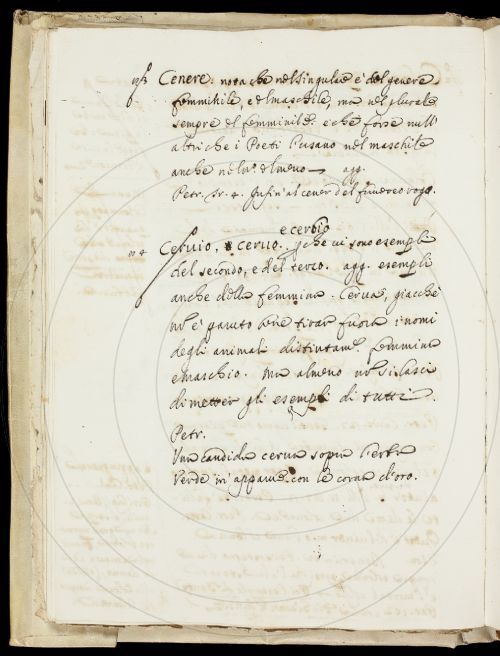 Cenere. nota che nel singular è del genere
femminile, e del maschile, ma nel plurale
sempre del feminile. e che forse null'
altri che i Poeti l'usano nel maschile
anche nel nᵒ. del meno — agg.
Petr. Tr. 4. Infin' al cener del funereo rogo.
e cerbio
Ceruio, e ceruo. che ui sono esempli
del secondo, e del terzo. agg. esempli
anche della femmina. Cerua, giacchè
nō è paruto bene tirar fuora i nomi
degli animali distintamᵉ. femmina
e maschio. Ma almeno nō si lasci
di metter gli esempli di tutti.
Petr.
Una candida cerua sopra l'erba
Verde m'apparue con le corna d'oro.